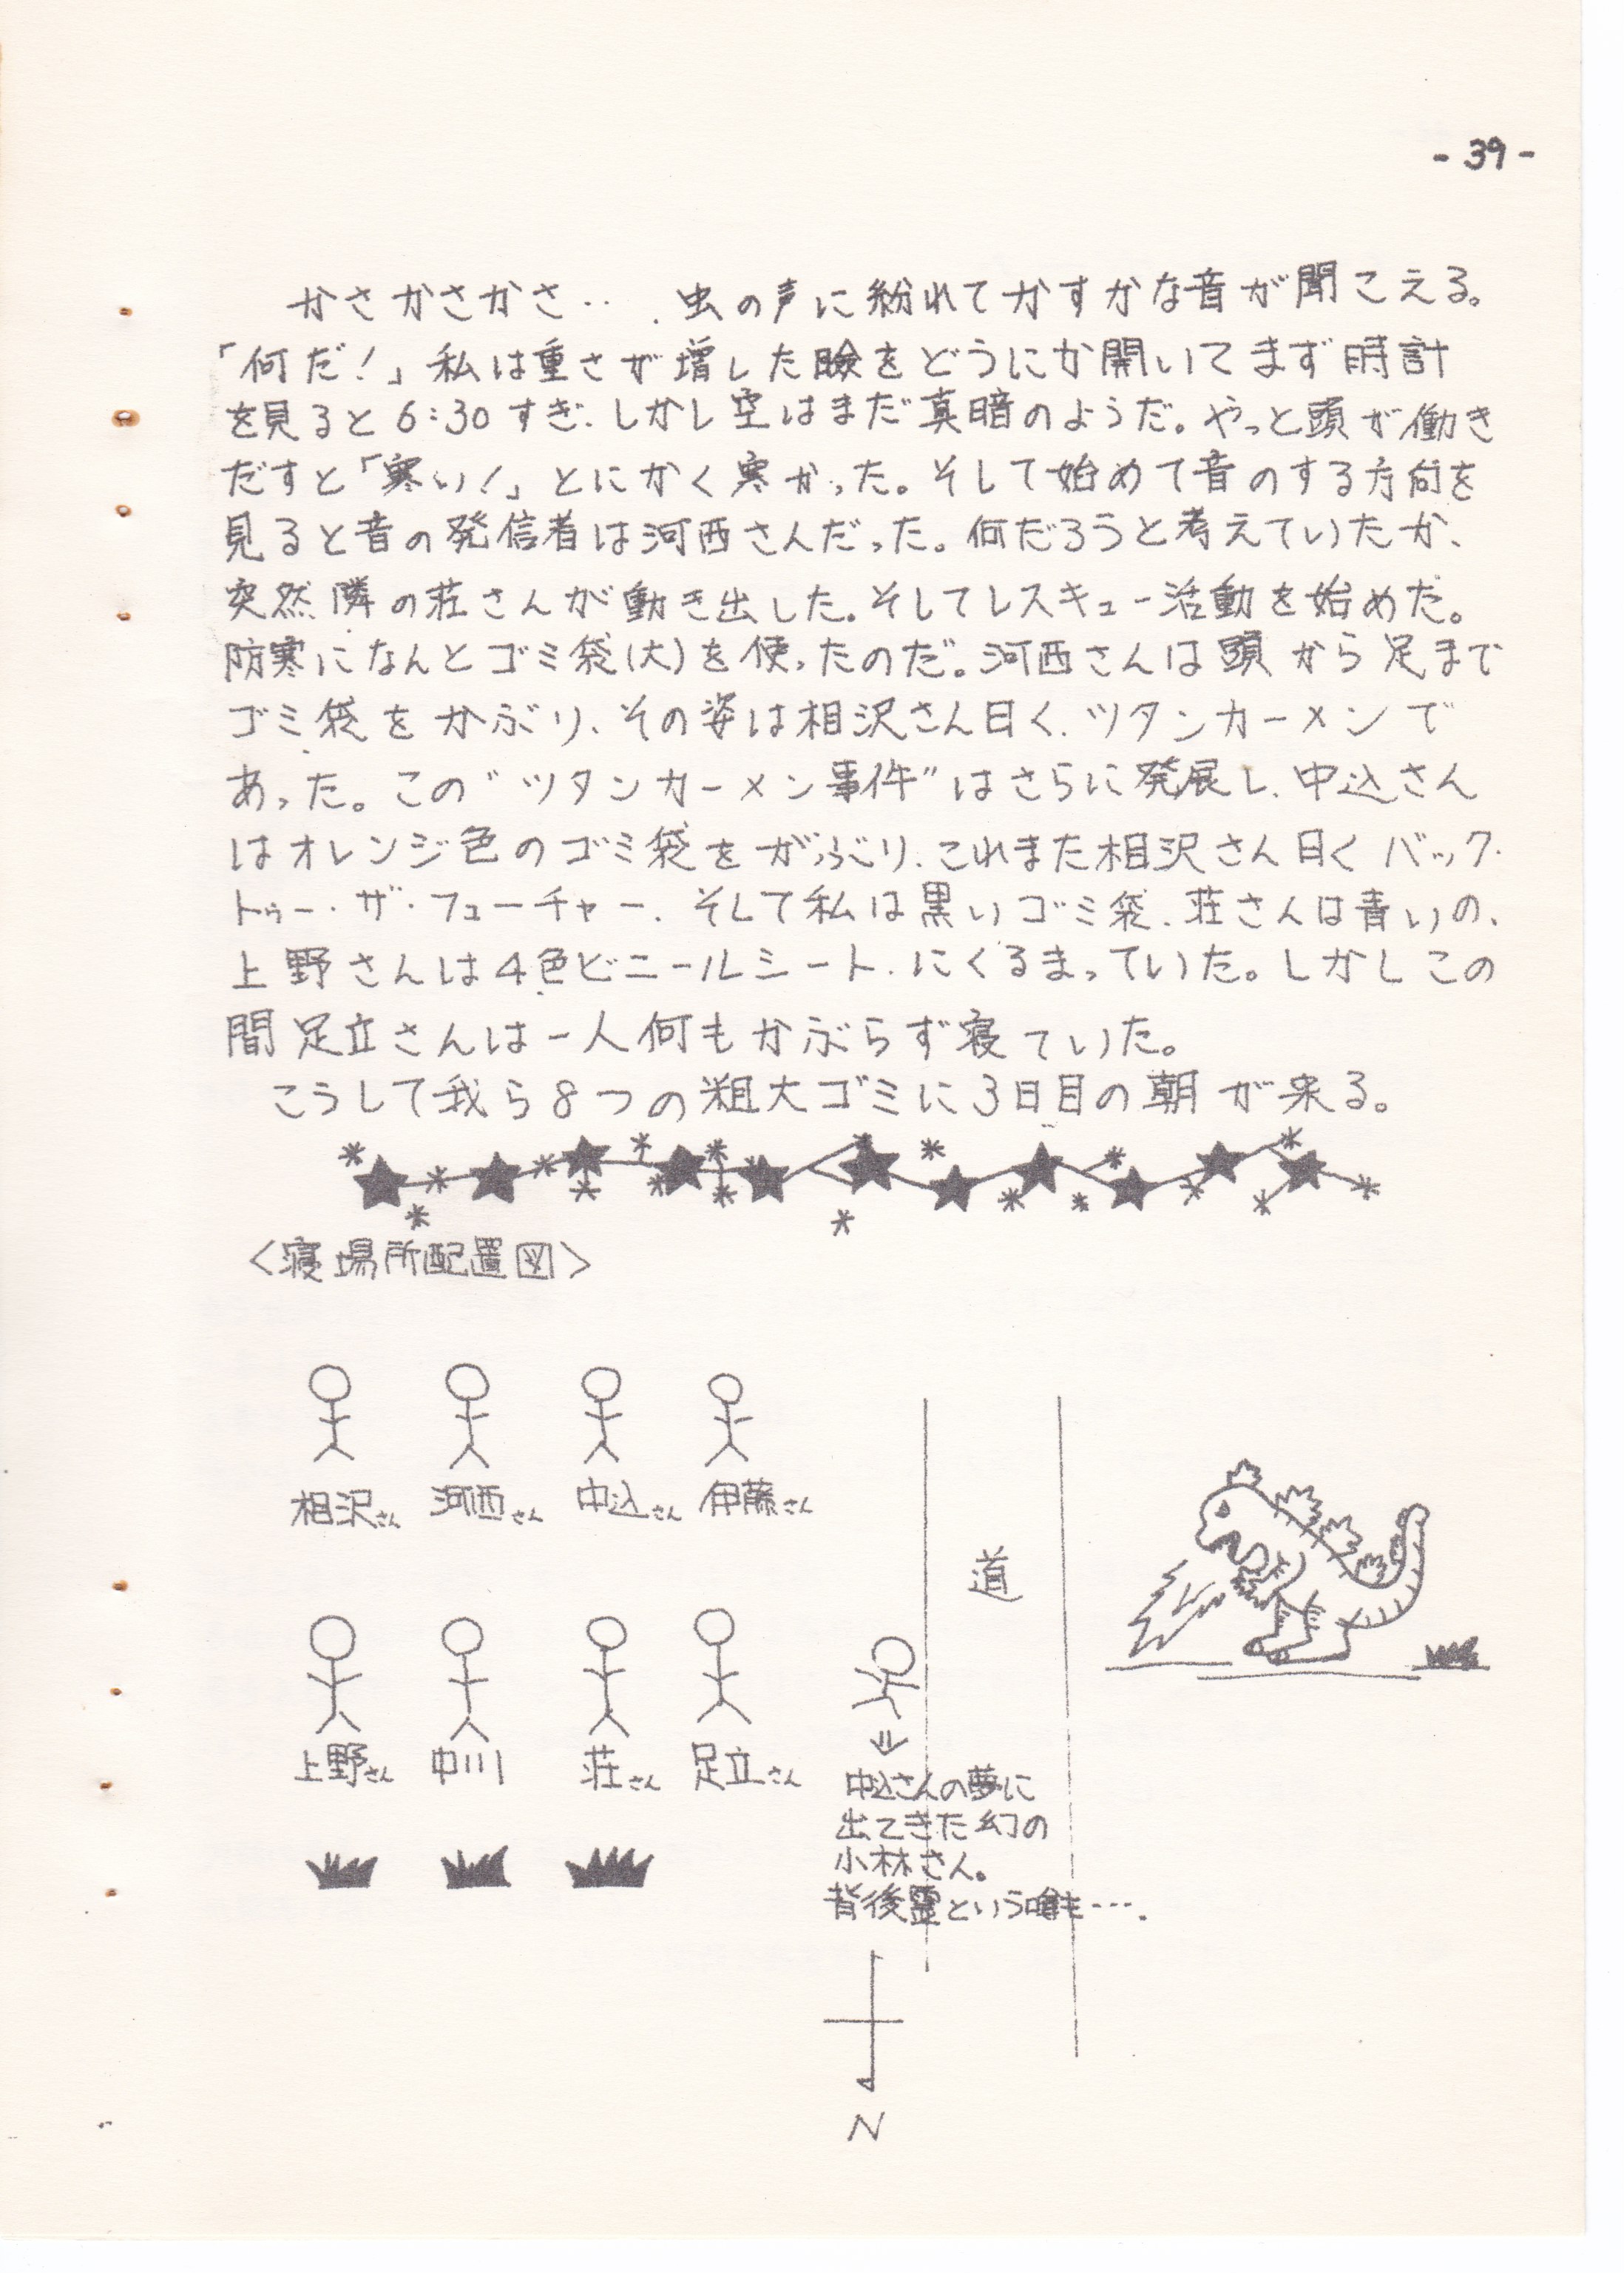 - 39 -
かさかさかさ‥ . 虫の声に紛れてかすかな音が聞こえる。
「何だ!」私は重さが増した瞼をどうにか開いてまず時計
を見ると6:30すぎ、しかし空はまだ真暗のようだ。やっと頭が働き
だすと「寒い!」とにかく寒かった。そして始めて音のする方向を
見ると音の発信者は河西さんだった。何だろうと考えていたか、
突然隣の荘さんが動き出した。そしてレスキュー活動を始めだ。
防寒になんとゴミ袋(大)を使ったのだ。河西さんは頭から足まで
ゴミ袋をかぶり、その姿は相沢さん曰く、ツタンカーメンで
あった。この"ツタンカーメン事件"はさらに発展し、中込さん
はオレンジ色のゴミ袋をがぶり、これまた相沢さん曰くバック・
トゥー・ザ・フューチャー、そして私は黒いゴミ袋、荘さんは青いの、
上野さんは4色ビニールシート、にくるまっていた。しかしこの
間足立さんは一人何もかぶらず寝ていた。
こうして我ら8つの粗大ゴミに3日目の朝が来る。
<寝場所配置図>
相沢さん 河西さん 中込さん 伊藤さん
道
上野さん 中川 荘さん 足立さん
⇓
中込さんの夢に
出てきた幻の
小林さん。
背後霊という噂も‥‥.
N